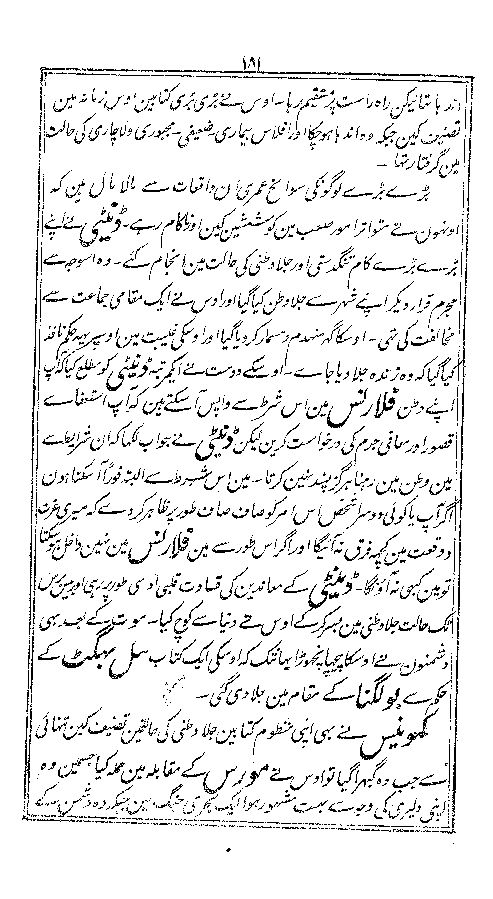 ۱۸۱
اندر ہا تنا لیکن راہ راست پر مستقیم رہا۔ اوس نے بڑی بڑی کتابین اوس زمانہ مین
تصنیف کین جبکہ وہ اندہا ہوچکا اور افلاس بیماری ضعیفی۔ مجبوری ولاچاری کی حالت
مین گرفتار تہا۔
بڑے بڑے لوگونکی سوانح عمری ان واقعات سے مالا مال ہین کہ
اونہون نے متواتر امور صعب مین کوششین کین اور ناکام رہے۔ ڈینٹی نے اپنے
بڑے بڑے کام تنگدستی اور جلاوطنی کی حالت مین انجام کئے۔ وہ اسوجہ سے
مجرم قرار دیکر اپنے شہر سے جلاوطن کیا گیا اور اوس نے ایک مقامی جماعت سے
مخالفت کی تہی۔ اوسکا گہر منہدم ومسمار کردیا گیا اور اوسکی غیبت مین اوسپر یہہ حکم نافذ
کیا گیا کہ وہ زندہ جلا دیا جاے۔ اوسکے دوست نے ایکمرتبہ ڈینٹی کو مطلع کیا کہ آپ
اپنے وطن فلارنس مین اس شرط سے واپس آسکتے ہین کہ آپ استعفاے
قصور اور معافی جرم کی درخواست کرین لیکن ڈینٹی نے جواب لکہا کہ ان شرایط سے
مین وطن مین رہنا ہرگز پسند نہین کرتا۔ مین اس شرط سے البتہ فوراً آسکتا ہون
اگر آپ یا کوئی دوسرا شخص اس امر کو صاف صاف طور پر ظاہر کردے کہ میری عزت
ووقعت مین کچہہ فرق نہ آئیگا اور اگر اس طور سے مین فلارنس مین نہین داخل ہوسکتا
تو مین کبہی نہ آؤنگا۔ ڈینٹی کے معاندین کی قساوت قلبی اوسی طور پر رہی اور بیس برس
تک حالت جلاوطنی مین بسر کرکے اوس نے دنیا سے کوچ کیا۔ موت کے بعد بہی
دشمنون نے اوسکا پیچہا نچہوڑا یہانتک کہ اوسکی ایک کتاب سل پہگٹ کے
حکم سے بولگنا کے مقام مین جلادی گئی۔
کمونیس نے بہی اپنی منظوم کتابین جلاوطنی کی حالتین تصنیف کین تنہائی
سے جب وہ گہبرا گیا تو اوس نے مورس کے مقابلہ مین حملہ کیا جسمین وہ
اپنی دلیری کی وجہ سے بہت مشہور ہوا ایک بحری جنگ مین جبکہ وہ دشمن کے